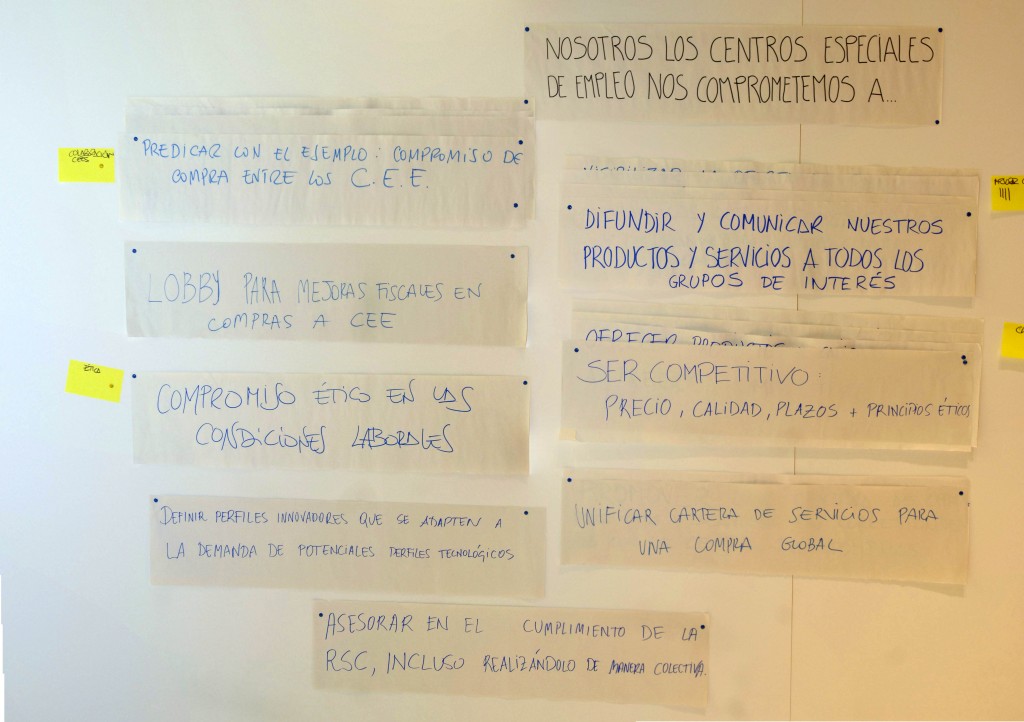 NOSOTROS LOS CENTROS ESPECIALES
DE EMPLEO NOS COMPROMETEMOS A...
COLABORACIÓN
CEES
PREDICAR CON EL EJEMPLO: COMPROMISO DE
COMPRA ENTRE LOS C.E.E.
LOBBY PARA MEJORAS FISCALES EN
COMPRAS A CEE
ÉTICA
COMPROMISO ÉTICO EN LAS
CONDICIONES LABORALES
DEFINIR PERFILES INNOVADORES QUE SE ADAPTEN A
LA DEMANDA DE POTENCIALES PERFILES TECNOLÓGICOS
DIFUNDIR Y COMUNICAR NUESTROS
PRODUCTOS Y SERVICIOS A TODOS LOS
GRUPOS DE INTERÉS
OFRECER PRODUCTOS
SER COMPETITIVO:
PRECIO, CALIDAD, PLAZOS + PRINCIPIOS ÉTICOS
UNIFICAR CARTERA DE SERVICIOS PARA
UNA COMPRA GLOBAL
ASESORAR EN EL CUMPLIMIENTO DE LA
RSC, INCLUSO REALIZÁNDOLO DE MANERA COLECTIVA.